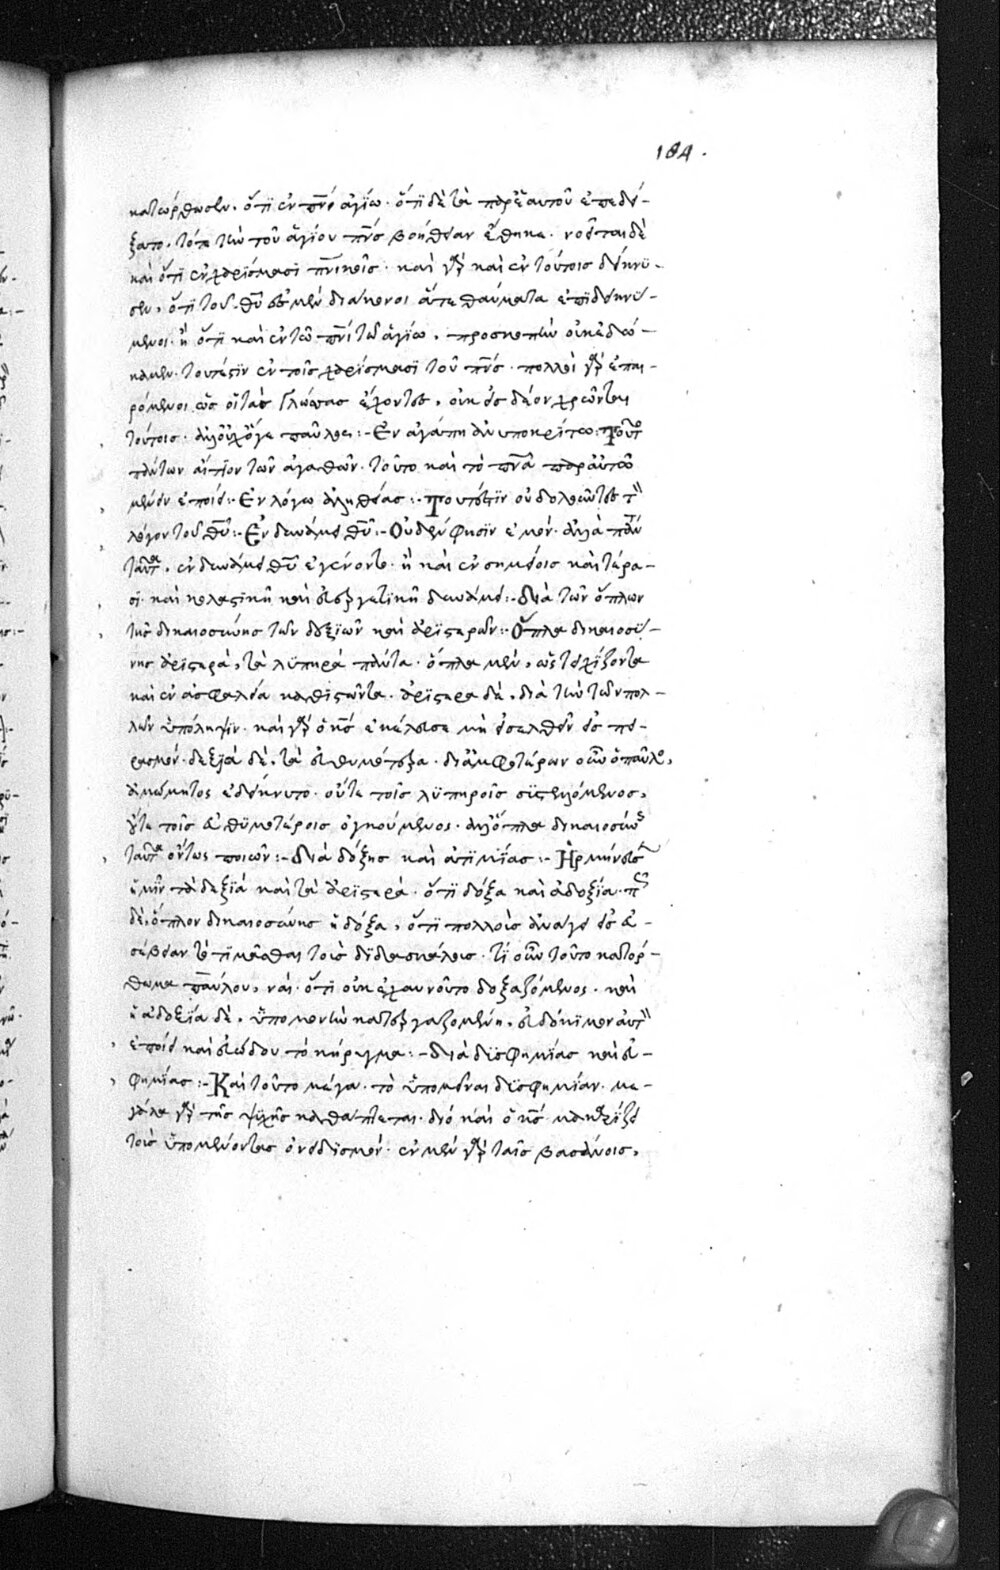 184.
κατώρθωσεν. ὅτι ἐν πνι ἁγίω. ὅτι δὲ τὰ παρ' ἑαυτοῦ ἐπεδεί-
ξατο. τότε τὴν τοῦ ἁγίου πνς βοήθειαν ἔθηκε. νοεῖται δὲ
καὶ ὅτι ἐν χαρίσμασι πνικοῖς. καὶ γὰρ καὶ ἐν τούτοις δείκνυ-
σιν, ὅτι τοῦ θυ ἐσμὲν διάκονοι ἅτε θαύματα ἐπιδεικνύ-
μενοι. ἢ ὅτι καὶ ἐν τῶ πνι τῶ ἁγίω, προσκοπὴν οὐκ ἐδώ-
καμεν. τουτέστιν ἐν τοῖς χαρίσμασι τοῦ πνς. πολλοὶ γὰρ ἐπαι-
ρόμενοι ὡς οἱ τὰς γλώσσας ἔχοντες, οὐκ εἰς δέον χρῶνται
τούτοις. ἀλλ' οὐχ ὅγε παῦλος:- Ἐν ἀγάπη ἀνυποκρίτω. Τοῦτο
πάντων αἴτιον τῶν ἀγαθῶν. τοῦτο καὶ τὸ πνα παρ' αὐτῶ
μένειν ἐποίει:- Ἐν λόγω ἀληθείας:- Τουτέστιν οὐ δολοῦντες τὸν
λόγον τοῦ θυ:- Ἐν δυνάμει θυ:- Οὐδὲν φησὶν ἐμόν. ἀλλὰ πάντα
ταῦτα, ἐν δυνάμει θυ ἐγένοντο. ἢ καὶ ἐν σημείοις καὶ τέρα-
σι. καὶ κολαστικῆ καὶ εὐεργετικῆ δυνάμει:- Διὰ τῶν ὅπλων
τῆς δικαιοσύνης τῶν δεξιῶν καὶ ἀριστερῶν:- Ὅπλα δικαιοσύ-
νης ἀριστερὰ, τὰ λυπηρὰ πάντα. ὅπλα μὲν, ὡς τειχίζοντα
καὶ ἐν ἀσφαλεία καθιστῶντα. ἀριστερὰ δὲ, διὰ τὴν τῶν πολ-
λῶν ὑπόληψιν. καὶ γὰρ ὁ κς ἐκέλευσε μὴ εἰσελθεῖν εἰς πει-
ρασμόν. δεξιὰ δὲ, τὰ εὐθυμότερα. δι' ἀμφοτέρων οὖν ὁ παῦλος,
ἀκώμητος ἐδείκνυτο. οὔτε τοῖς λυπηροῖς συστελλόμενος,
οὔτε τοῖς εὐθυμοτέροις ὀγκούμενος. ἀλλ' ὅπλα δικαιοσύνης
ταῦτα ὄντως ποιῶν:- Διὰ δόξης καὶ ἀτιμίας:- Ἡρμήνευσεν
ἡμῖν τὰ δεξιὰ καὶ τὰ ἀριστερὰ. ὅτι δόξα καὶ ἀδοξία. πῶς
δὲ, ὅπλον δικαιοσύνης ἡ δόξα, ὅτι πολλοὺς ἀνάγει εἰς εὐ-
σέβειαν τὸ τιμᾶσθαι τοὺς διδασκάλους. τί οὖν τοῦτο κατόρ-
θωμα παύλου, ναί. ὅτι οὐκ ἐχαυνοῦτο δοξαζόμενος. καὶ
ἡ ἀδοξία δὲ, ὑπομονὴν κατεργαζομένη, εὐδόκιμον αὐτὸν
ἐποίει καὶ εὐώδου τὸ κήρυγμα:- Διὰ δυσφημίας καὶ εὐ-
φημίας:- Καὶ τοῦτο μέγα. τὸ ὑπομεῖναι δυσφημίαν. με-
γάλα γὰρ τῆς ψυχῆς καθάπτεται. διὸ καὶ ὁ κς μακαρίζει
τοὺς ὑπομένοντας ὀνειδισμόν. ἐν μὲν γὰρ ταῖς βασάνοις,